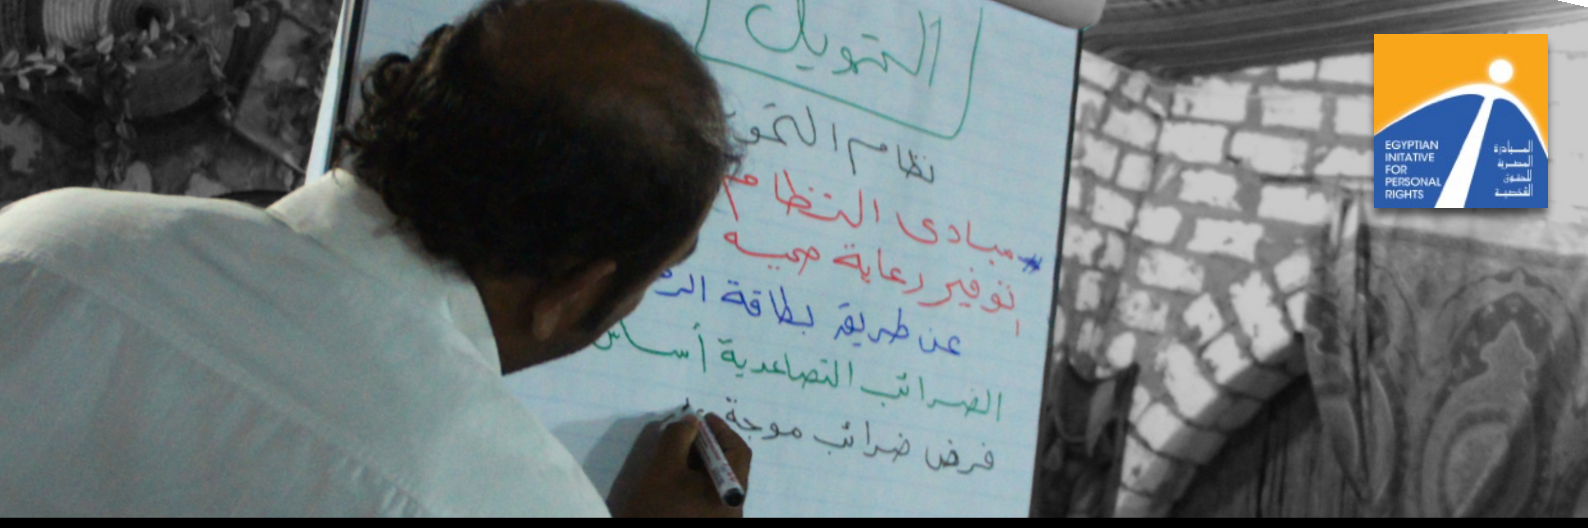 التمويل
نظام التمو
* مبادئ النظام
توفير رعاية صحيه
عن طريق بطاقة الر
الضرائب التصاعدية أساس
فرض ضرائب موجة
EGYPTIAN
INITATIVE
FOR
PERSONAL
RIGHTS
المبادرة
المصرية
للحقوق
الشخصية